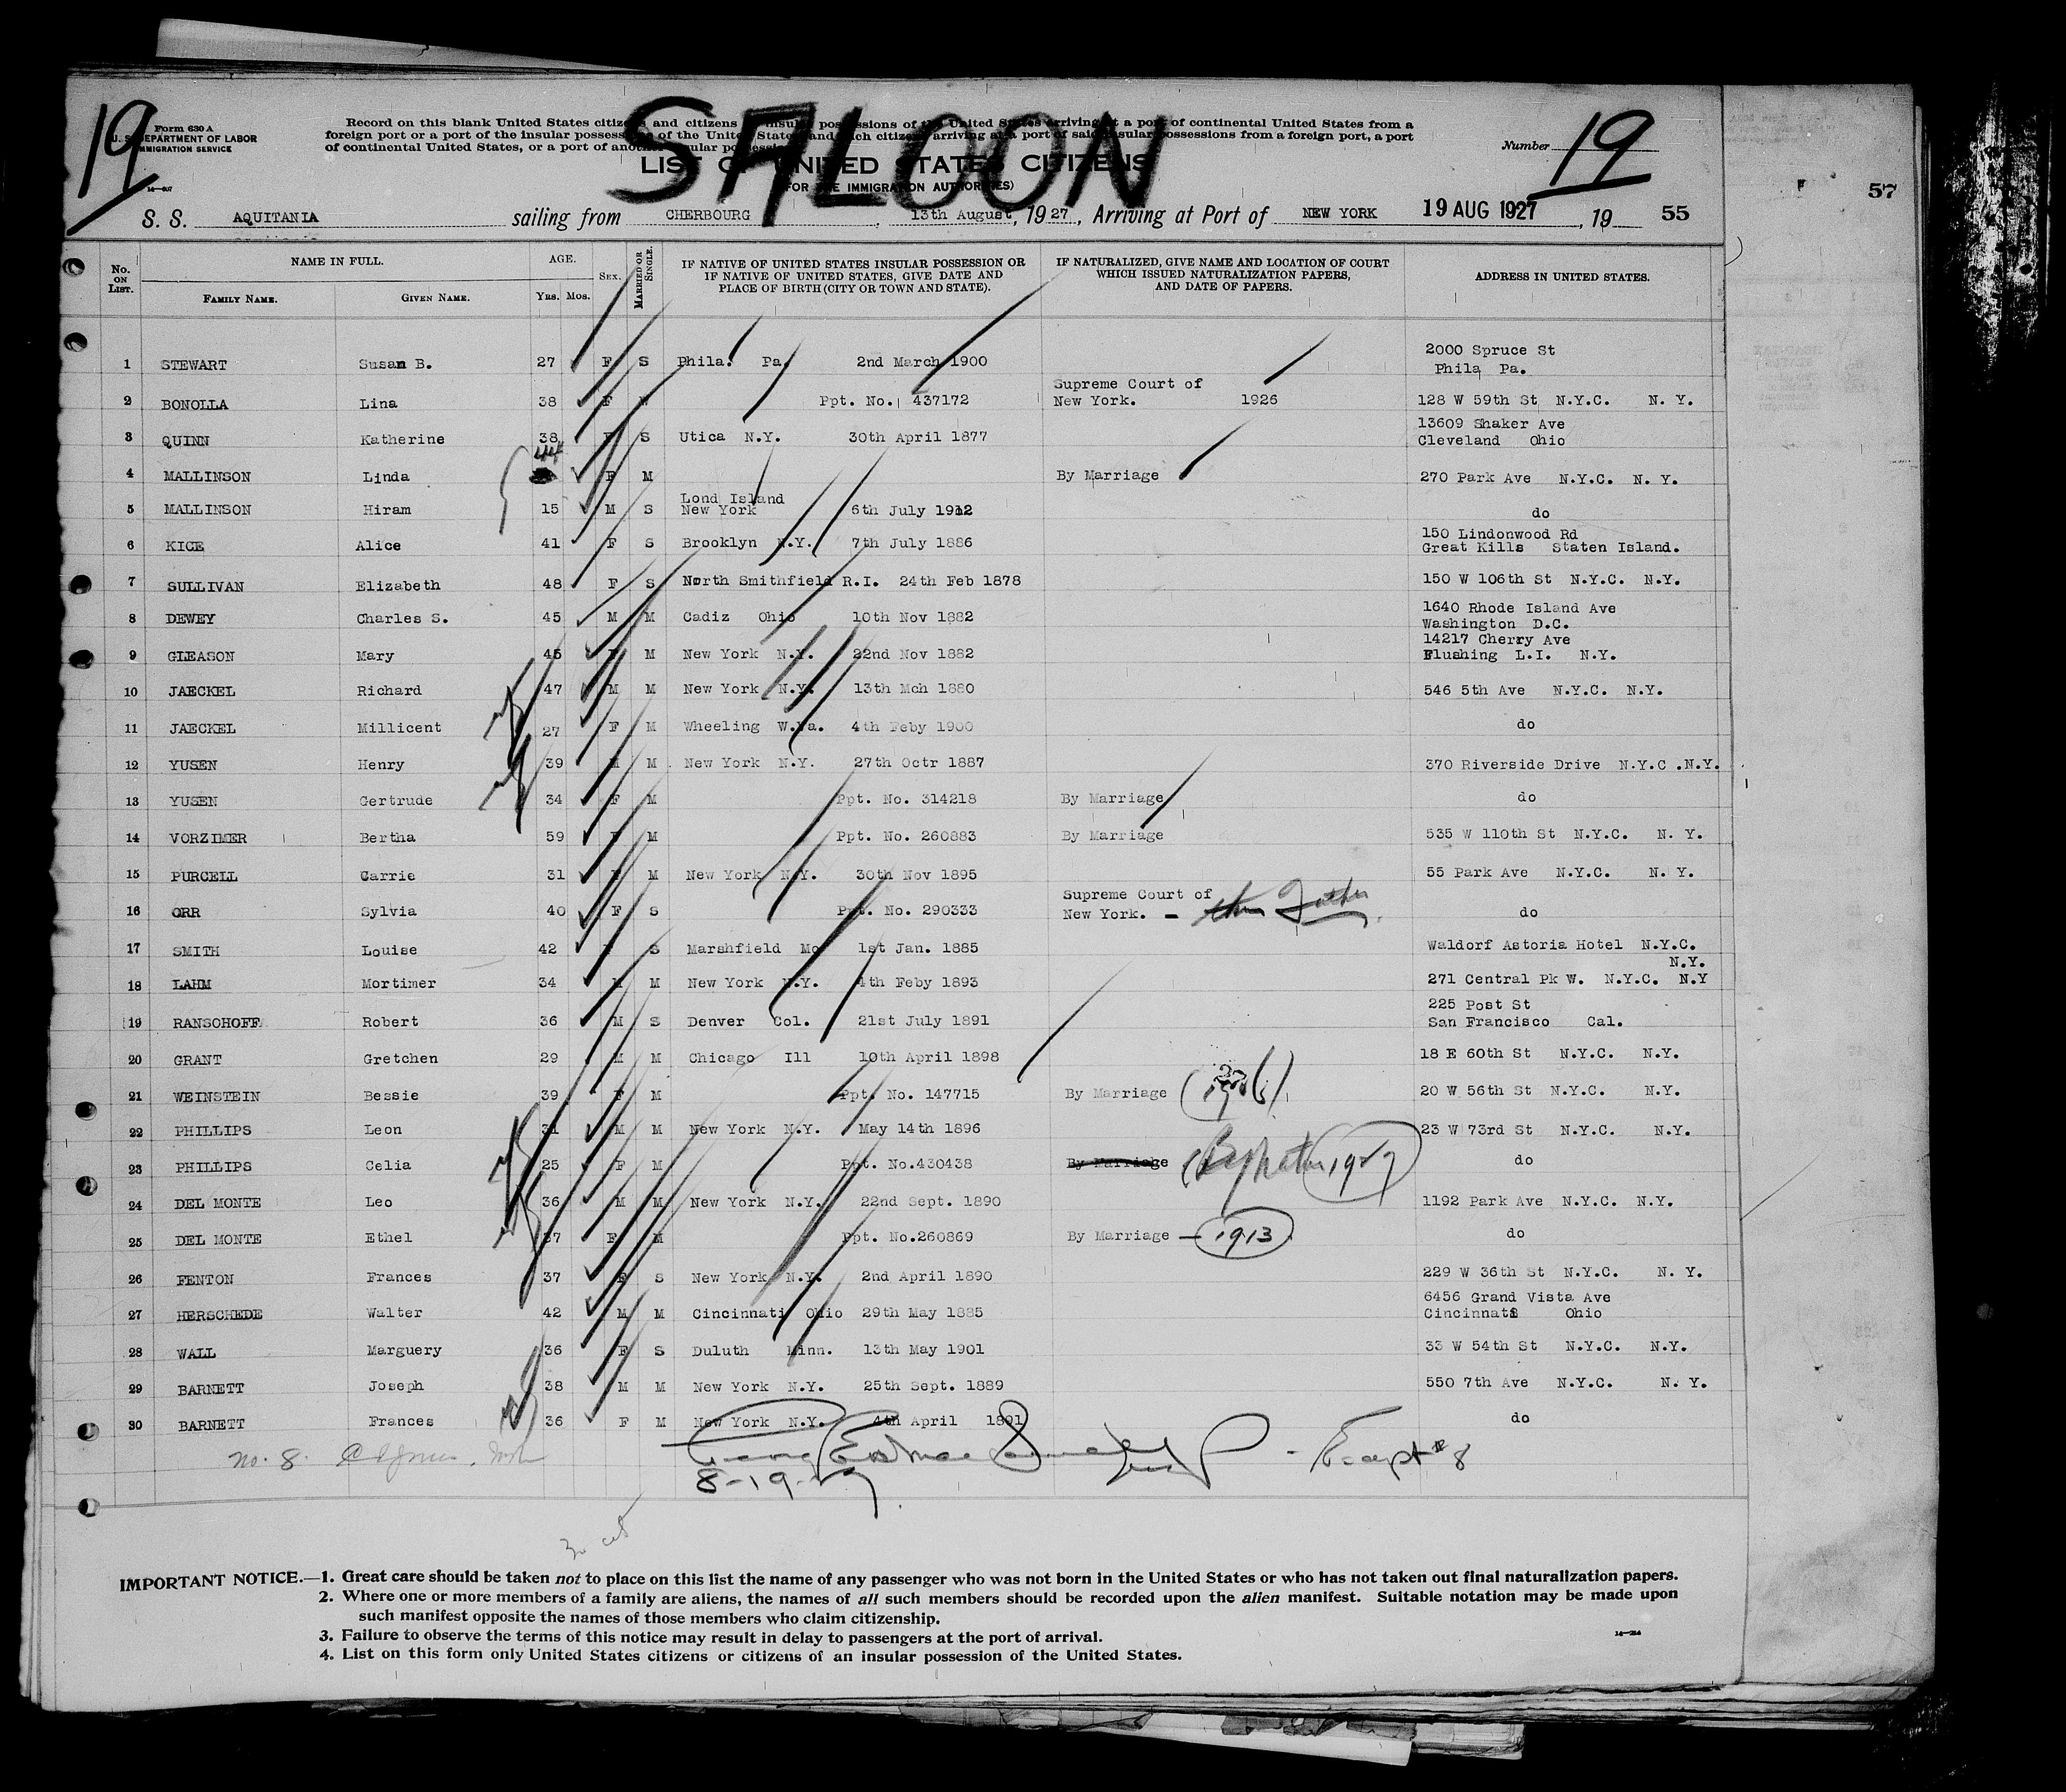 SALOON
19
Form 630 A
U. S. DEPARTMENT OF LABOR
IMMIGRATION SERVICE
Record on this blank United States citizens and citizens of insular possessions of the United States arriving at a port of continental United States from a
foreign port or a port of the insular possessions of the United States, and such citizens arriving at a port of said insular possessions from a foreign port, a port
of continental United States, or a port of another insular possession.
Number 19
LIST OF UNITED STATES CITIZENS
(FOR THE IMMIGRATION AUTHORITIES)
57
S. S. AQUITANIA sailing from CHERBOURG, 13th August, 1927, Arriving at Port of NEW YORK 19 AUG 1927, 19 55
No. ON LIST. NAME IN FULL. FAMILY NAME. GIVEN NAME. AGE. YRS. MOS. SEX. MARRIED OR SINGLE. IF NATIVE OF UNITED STATES INSULAR POSSESSION OR IF NATIVE OF UNITED STATES, GIVE DATE AND PLACE OF BIRTH (CITY OR TOWN AND STATE). IF NATURALIZED, GIVE NAME AND LOCATION OF COURT WHICH ISSUED NATURALIZATION PAPERS, AND DATE OF PAPERS. ADDRESS IN UNITED STATES.
1 STEWART Susan B. 27 F S Phila. Pa. 2nd March 1900 2000 Spruce St Phila Pa.
2 BONOLLA Lina 38 F W Ppt. No. 437172 Supreme Court of New York. 1926 128 W 59th St N.Y.C. N. Y.
3 QUINN Katherine 38 F S Utica N.Y. 30th April 1877 13609 Shaker Ave Cleveland Ohio
4 MALLINSON Linda 44 F M By Marriage 270 Park Ave N.Y.C. N. Y.
5 MALLINSON Hiram 15 M S Lond Island New York 6th July 1912 do
6 KICE Alice 41 F S Brooklyn N.Y. 7th July 1886 150 Lindonwood Rd Great Kills Staten Island.
7 SULLIVAN Elizabeth 48 F S North Smithfield R.I. 24th Feb 1878 150 W 106th St N.Y.C. N.Y.
8 DEWEY Charles S. 45 M M Cadiz Ohio 10th Nov 1882 1640 Rhode Island Ave Washington D.C.
9 GLEASON Mary 45 F M New York N.Y. 22nd Nov 1882 14217 Cherry Ave Flushing L.I. N.Y.
10 JAECKEL Richard 47 M M New York N.Y. 13th Mch 1880 546 5th Ave N.Y.C. N.Y.
11 JAECKEL Millicent 27 F M Wheeling W.Va. 4th Feby 1900 do
12 YUSEN Henry 39 M M New York N.Y. 27th Octr 1887 370 Riverside Drive N.Y.C .N.Y.
13 YUSEN Gertrude 34 F M Ppt. No. 314218 By Marriage do
14 VORZIMER Bertha 59 F M Ppt. No. 260883 By Marriage 535 W 110th St N.Y.C. N. Y.
15 PURCELL Carrie 31 F M New York N.Y. 30th Nov 1895 55 Park Ave N.Y.C. N. Y.
16 ORR Sylvia 40 F S Ppt. No. 290333 Supreme Court of New York. - thru Father do
17 SMITH Louise 42 F S Marshfield Mo 1st Jan. 1885 Waldorf Astoria Hotel N.Y.C. N.Y.
18 LAHM Mortimer 34 M M New York N.Y. 4th Feby 1893 271 Central Pk W. N.Y.C. N.Y
19 RANSOHOFF Robert 36 M S Denver Col. 21st July 1891 225 Post St San Francisco Cal.
20 GRANT Gretchen 29 M M Chicago Ill 10th April 1898 18 E 60th St N.Y.C. N.Y.
21 WEINSTEIN Bessie 39 F M Ppt. No. 147715 By Marriage (1906) 20 W 56th St N.Y.C. N.Y.
22 PHILLIPS Leon 31 M M New York N.Y. May 14th 1896 23 W 73rd St N.Y.C. N.Y.
23 PHILLIPS Celia 25 F M Ppt. No.430438 By Marriage 1927 do
24 DEL MONTE Leo 36 M M New York N.Y. 22nd Sept. 1890 1192 Park Ave N.Y.C. N.Y.
25 DEL MONTE Ethel 37 F M Ppt. No.260869 By Marriage — 1913 do
26 FENTON Frances 37 F S New York N.Y. 2nd April 1890 229 W 36th St N.Y.C. N. Y.
27 HERSCHEDE Walter 42 M M Cincinnati Ohio 29th May 1885 6456 Grand Vista Ave Cincinnati Ohio
28 WALL Marguery 36 F S Duluth Minn. 13th May 1901 33 W 54th St N.Y.C. N.Y.
29 BARNETT Joseph 38 M M New York N.Y. 25th Sept. 1889 550 7th Ave N.Y.C. N. Y.
30 BARNETT Frances 36 F M New York N.Y. 4th April 1891 do
no. 8.
- Except # 8
8-19-27
IMPORTANT NOTICE.—1. Great care should be taken not to place on this list the name of any passenger who was not born in the United States or who has not taken out final naturalization papers.
2. Where one or more members of a family are aliens, the names of all such members should be recorded upon the alien manifest. Suitable notation may be made upon
such manifest opposite the names of those members who claim citizenship.
3. Failure to observe the terms of this notice may result in delay to passengers at the port of arrival.
4. List on this form only United States citizens or citizens of an insular possession of the United States.